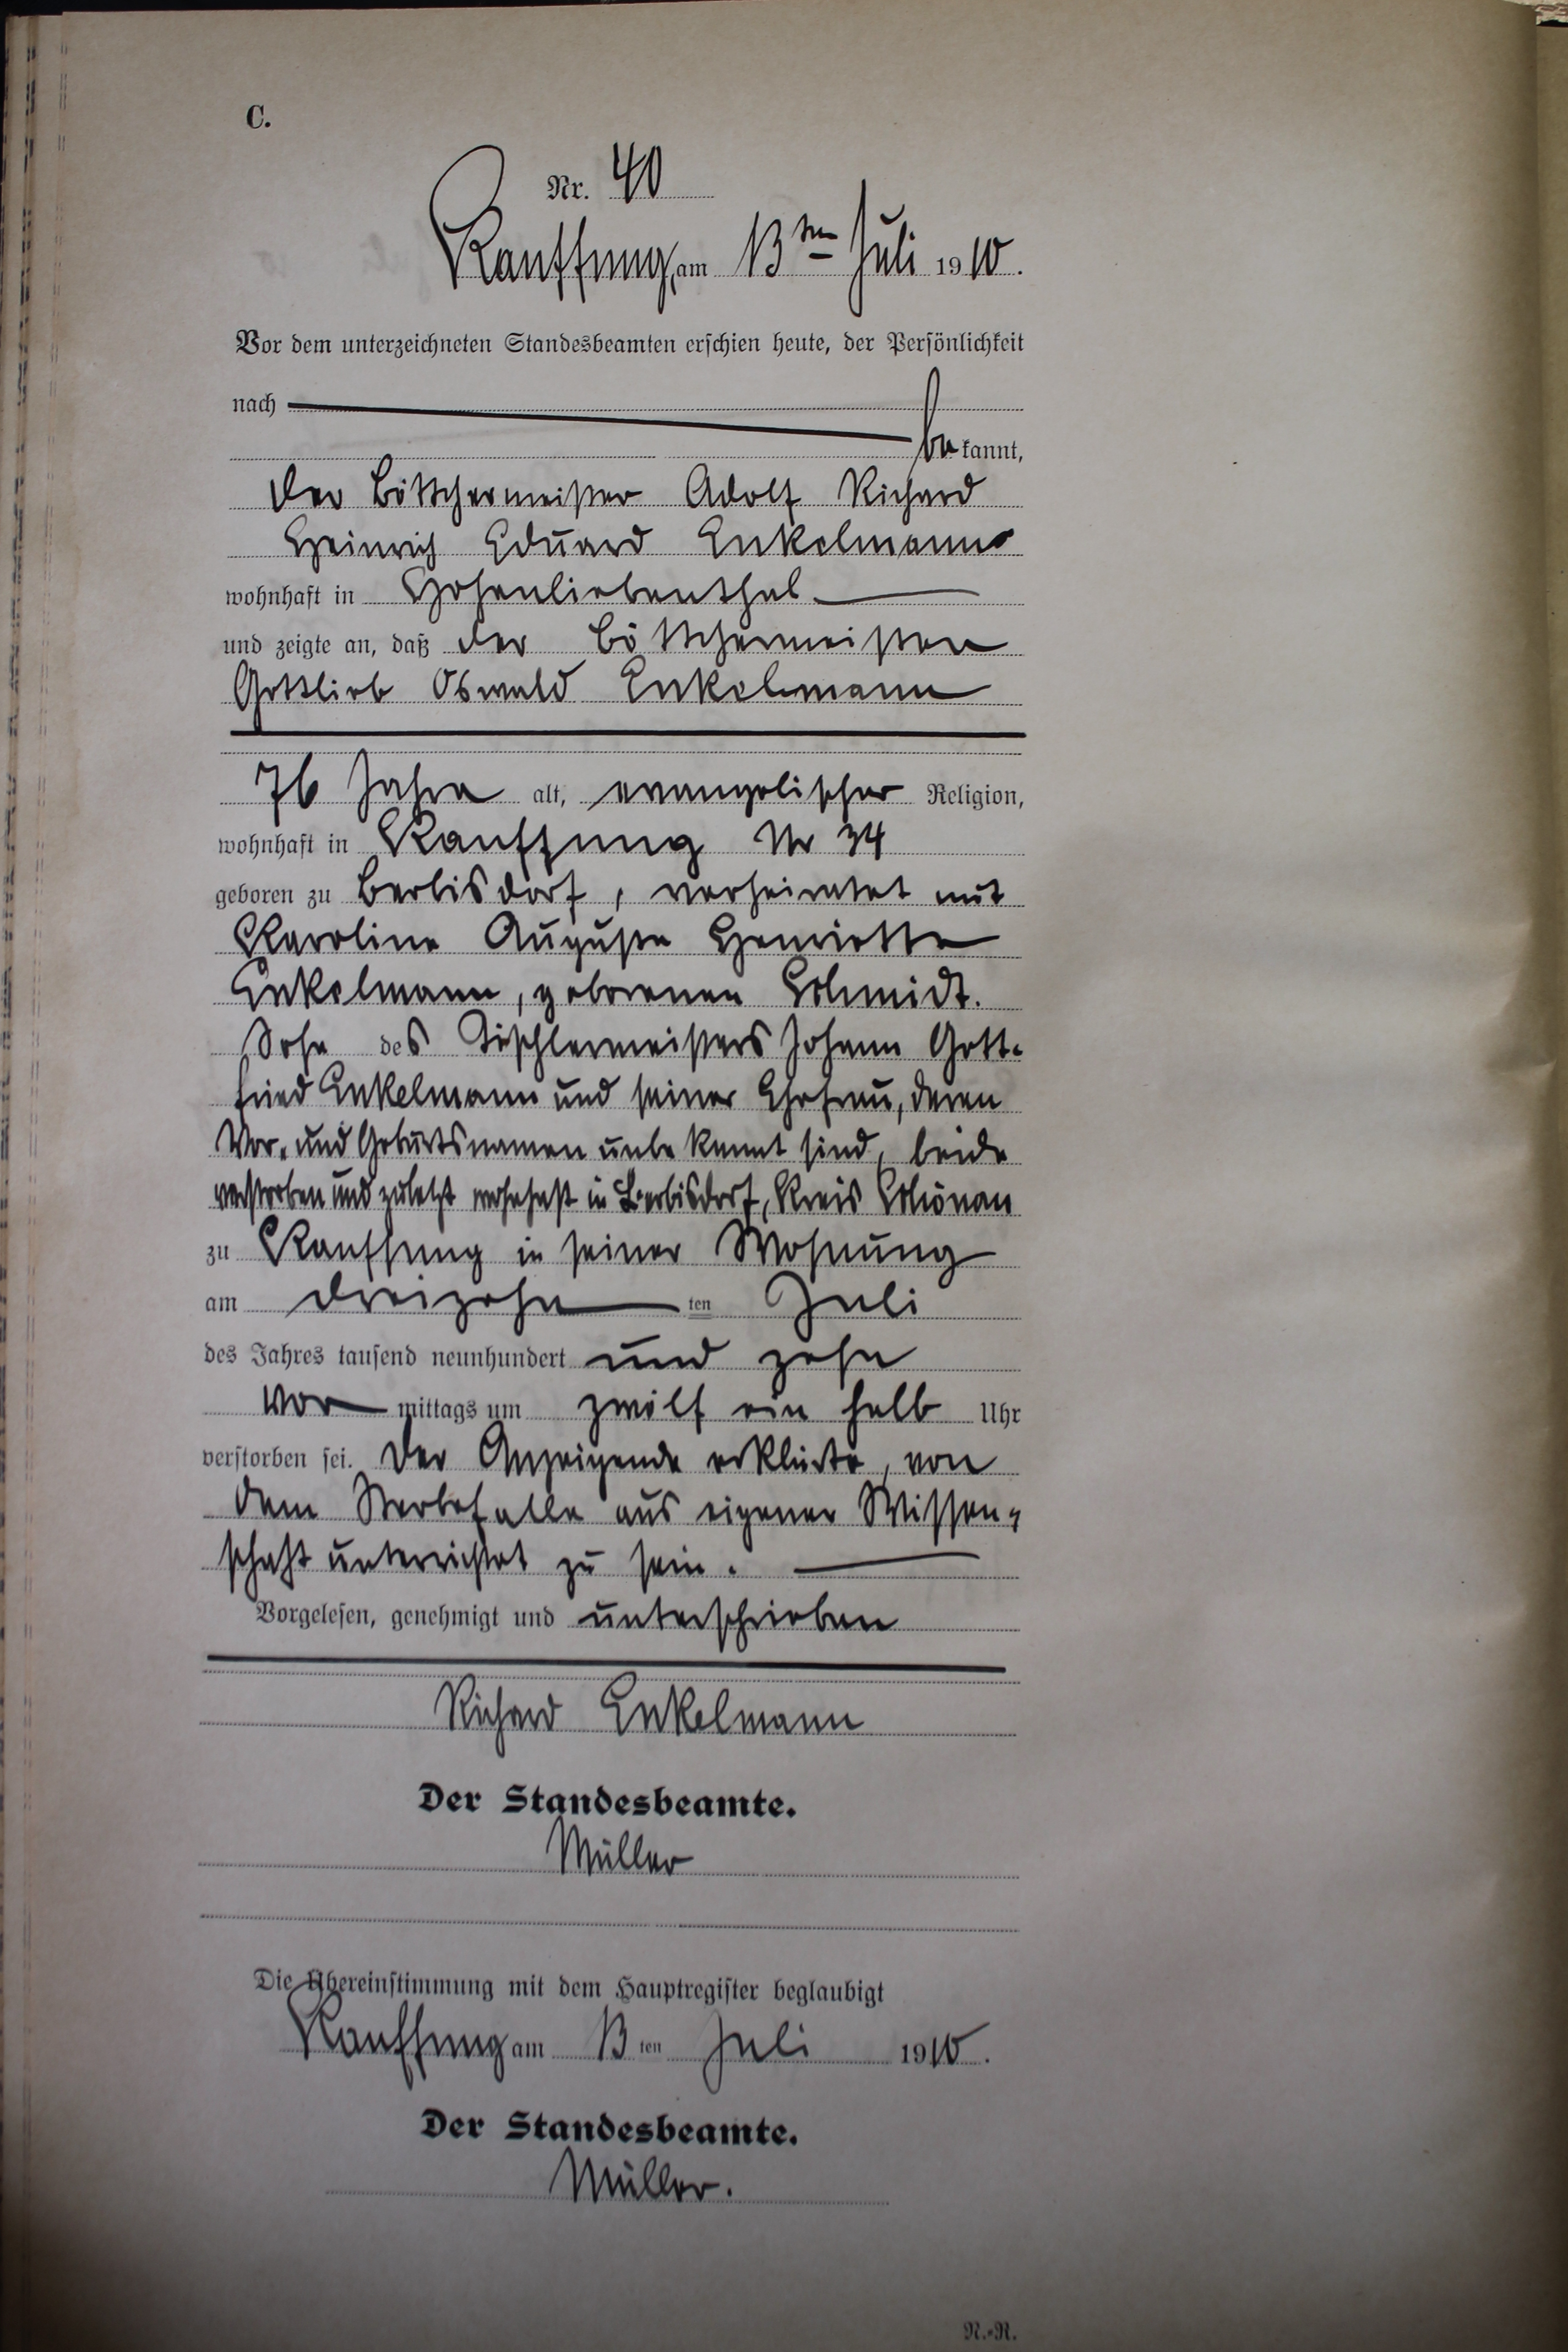 C.
Nr. 40
Kauffung, am 13ten Juli 1910.
Vor dem unterzeichneten Standesbeamten erschien heute, der Persönlichkeit
nach
be kannt,
der Böttchermeister Adolf Richard
Heinrich Eduard Enkelmann
wohnhaft in Hohenliebenthal
und zeigte an, daß der Böttchermeister
Gottlieb Oswald Enkelmann
76 Jahre alt, evangelischer Religion,
wohnhaft in Kauffung Nr 34
geboren zu Berbisdorf, verheiratet mit
Karoline Auguste Henriette
Enkelmann, geborenen Schmidt.
Sohn des Tischlermeisters Johann Gott-
fried Enkelmann und seiner Ehefrau, deren
Vor- und Geburtsnamen unbekannt sind, beide
verstorben und zuletzt wohnhaft in Berbisdorf, Kreis Schönau
zu Kauffung in seiner Wohnung
am dreizehn ten Juli
des Jahres tausend neunhundert und zehn
vor mittags um zwölf ein halb Uhr
verstorben sei. Der Anzeigende erklärte, von
dem Sterbefalle aus eigener Wissen-
schaft unterrichtet zu sein.
Vorgelesen, genehmigt und unterschrieben
Richard Enkelmann
Der Standesbeamte.
Müller
Die Übereinstimmung mit dem Hauptregister beglaubigt
Kauffung am 13 ten Juli 1910.
Der Standesbeamte.
Müller.
N.-R.